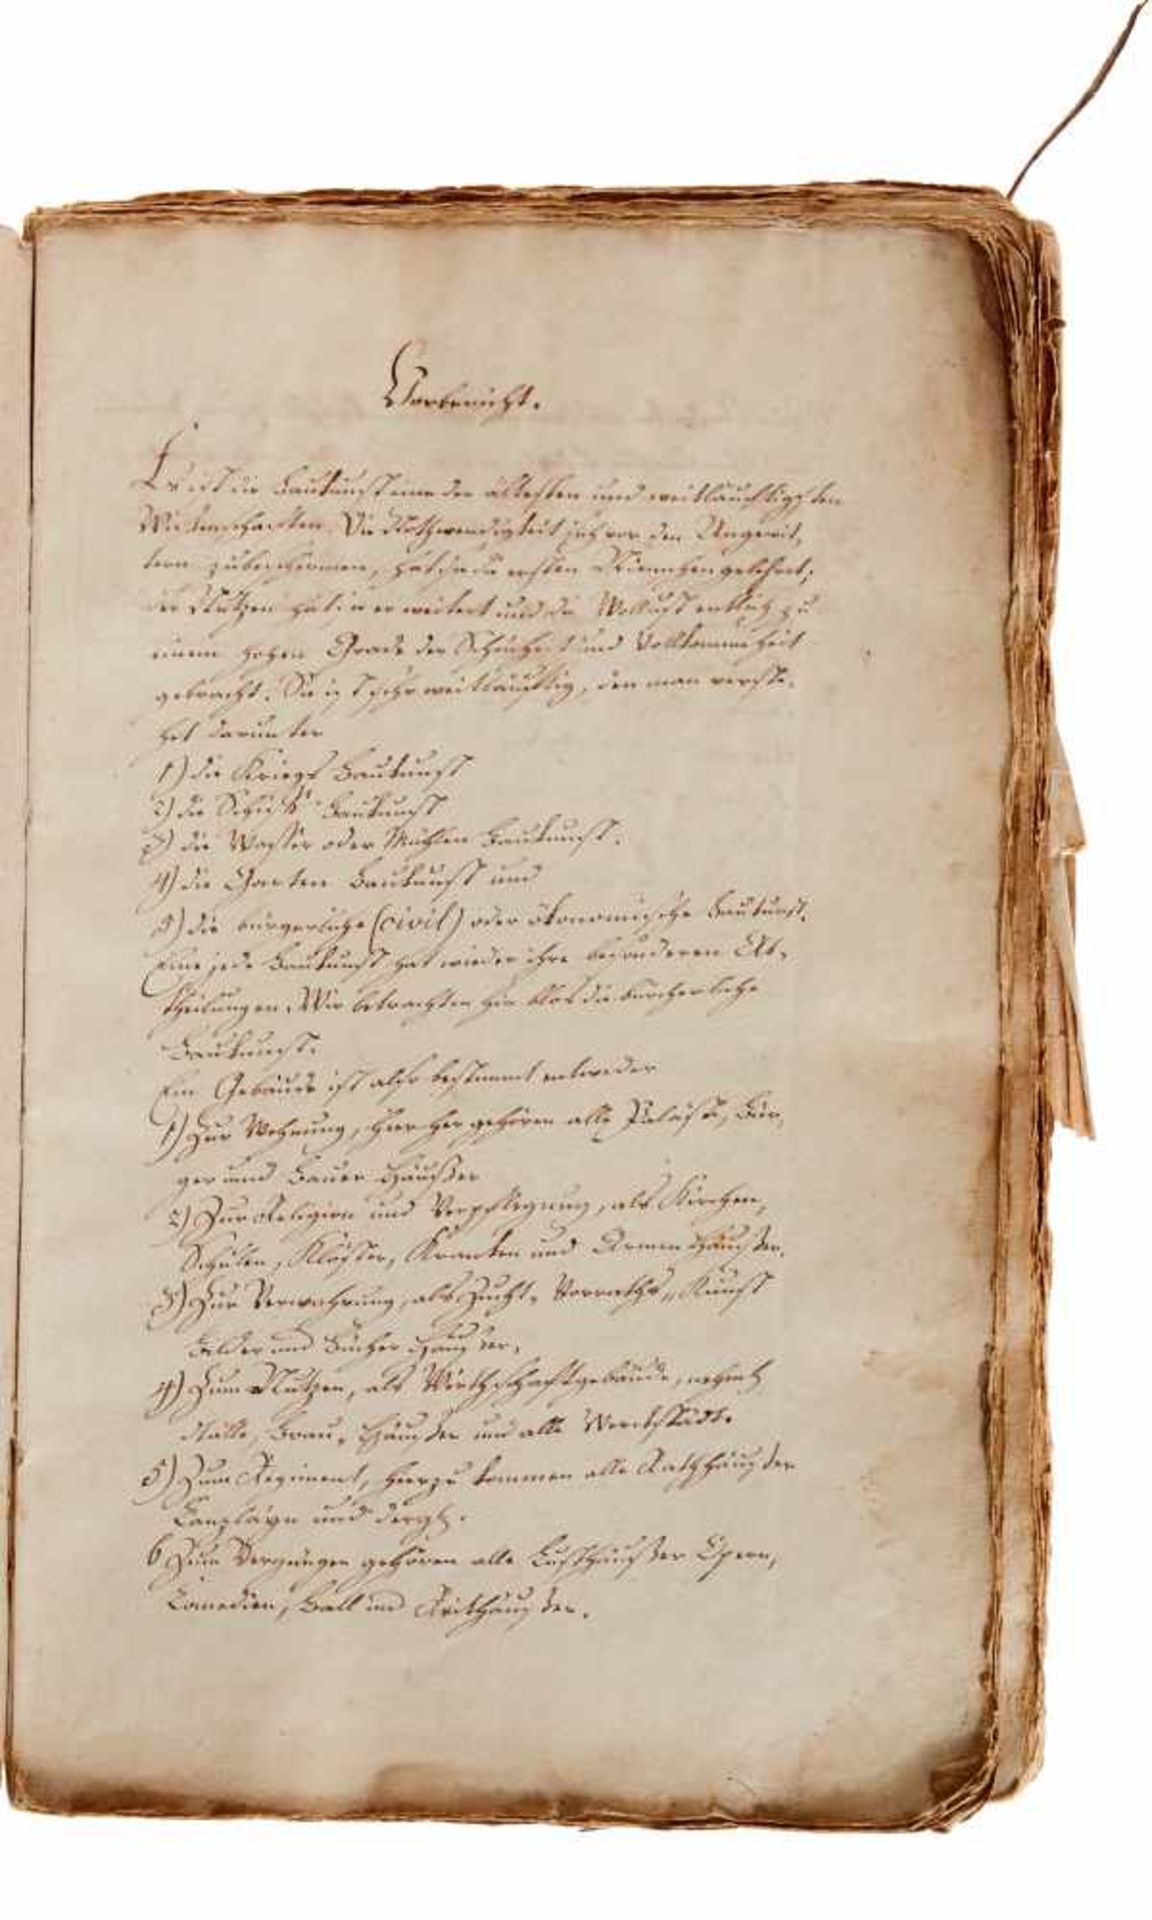 Vorbericht.
Es ist die Baukunst eine der ältesten und weitläuchtigsten
Wissenschaften. Die Nothwendigkeit sich vor den Ungewit,
tern zu beschirmen, hat sie die ersten Menschen gelehret;
der Nutzen hat sie erweitert und die Wollust entlich zu
einem hohen Grade der Schönheit und Vollkommenheit
gebracht. Sie ist sehr weitläuftig, den man verste,
het darunter
1) die Kriegs Baukunst
2) die Schiffs Baukunst
3) die Wasser oder Mühlen Baukunst.
4) die Garten Baukunst und
5) die bürgerliche (civil) oder ökonomische Baukunst.
Eine jede Baukunst hat wieder ihre besonderen Ab,
theilungen. Wir betrachten hier blos die bürcherliche
Baukunst.
Ein Gebäude ist also bestimmt entweder
1) Zur Wohnung, hier her gehören alle Paläste, Bür,
ger und Bauer Häußer
2) Zur Religion und Verpflegung, als Kirchen,
Schulen, Klöster, Kranken und Armen Häußer.
3) Zur Verwahrung, als Zucht, Vorraths,, Kunst
Bilder und Bücher Häußer.
4) Zum Nutzen, als Wirthschaftgebäude,
Ställe, Brau, Häußer und alle Werckstädte.
5) Zum Regiment, hierzu kommen alle Rathhäußer
Canzläyn und dergl.
6 Zum Vergnügen gehören alle Lusthäußer Opern,
Comedien, Ball und Reithäußer.